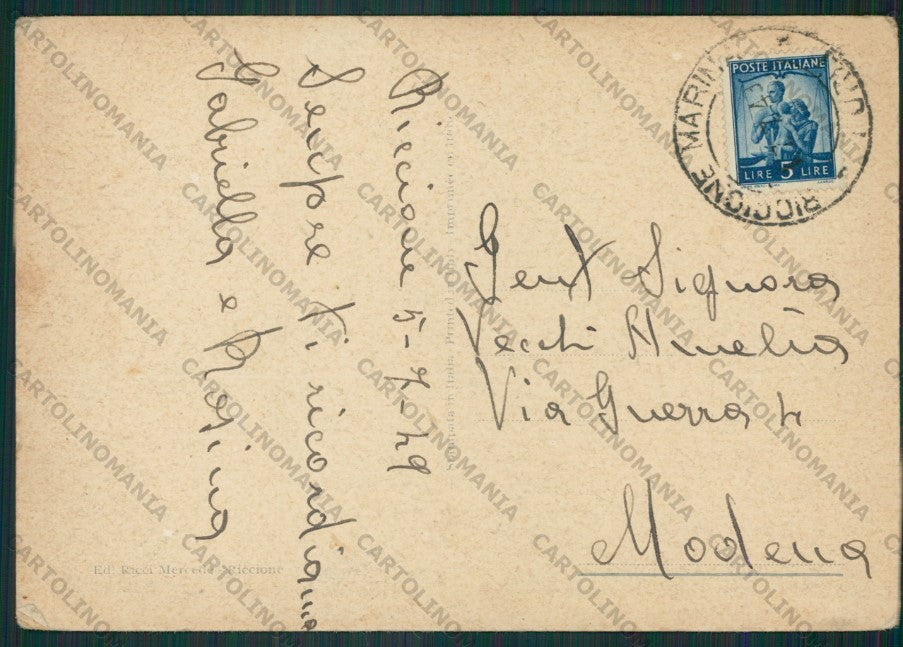 Riccione 5-7-49
Sempre ti ricordiamo
Gabriella e Rosina
Gent Signora
Vecchi Amelia
Via Guerra 4
Modena
POSTE ITALIANE
LIRE 5 LIRE
RICCIONE MARINA
Stampata in Italia Printed in Italy Imprimée en Italie
Ed. Ricci Mercede Riccione
CARTOLINOMANIA